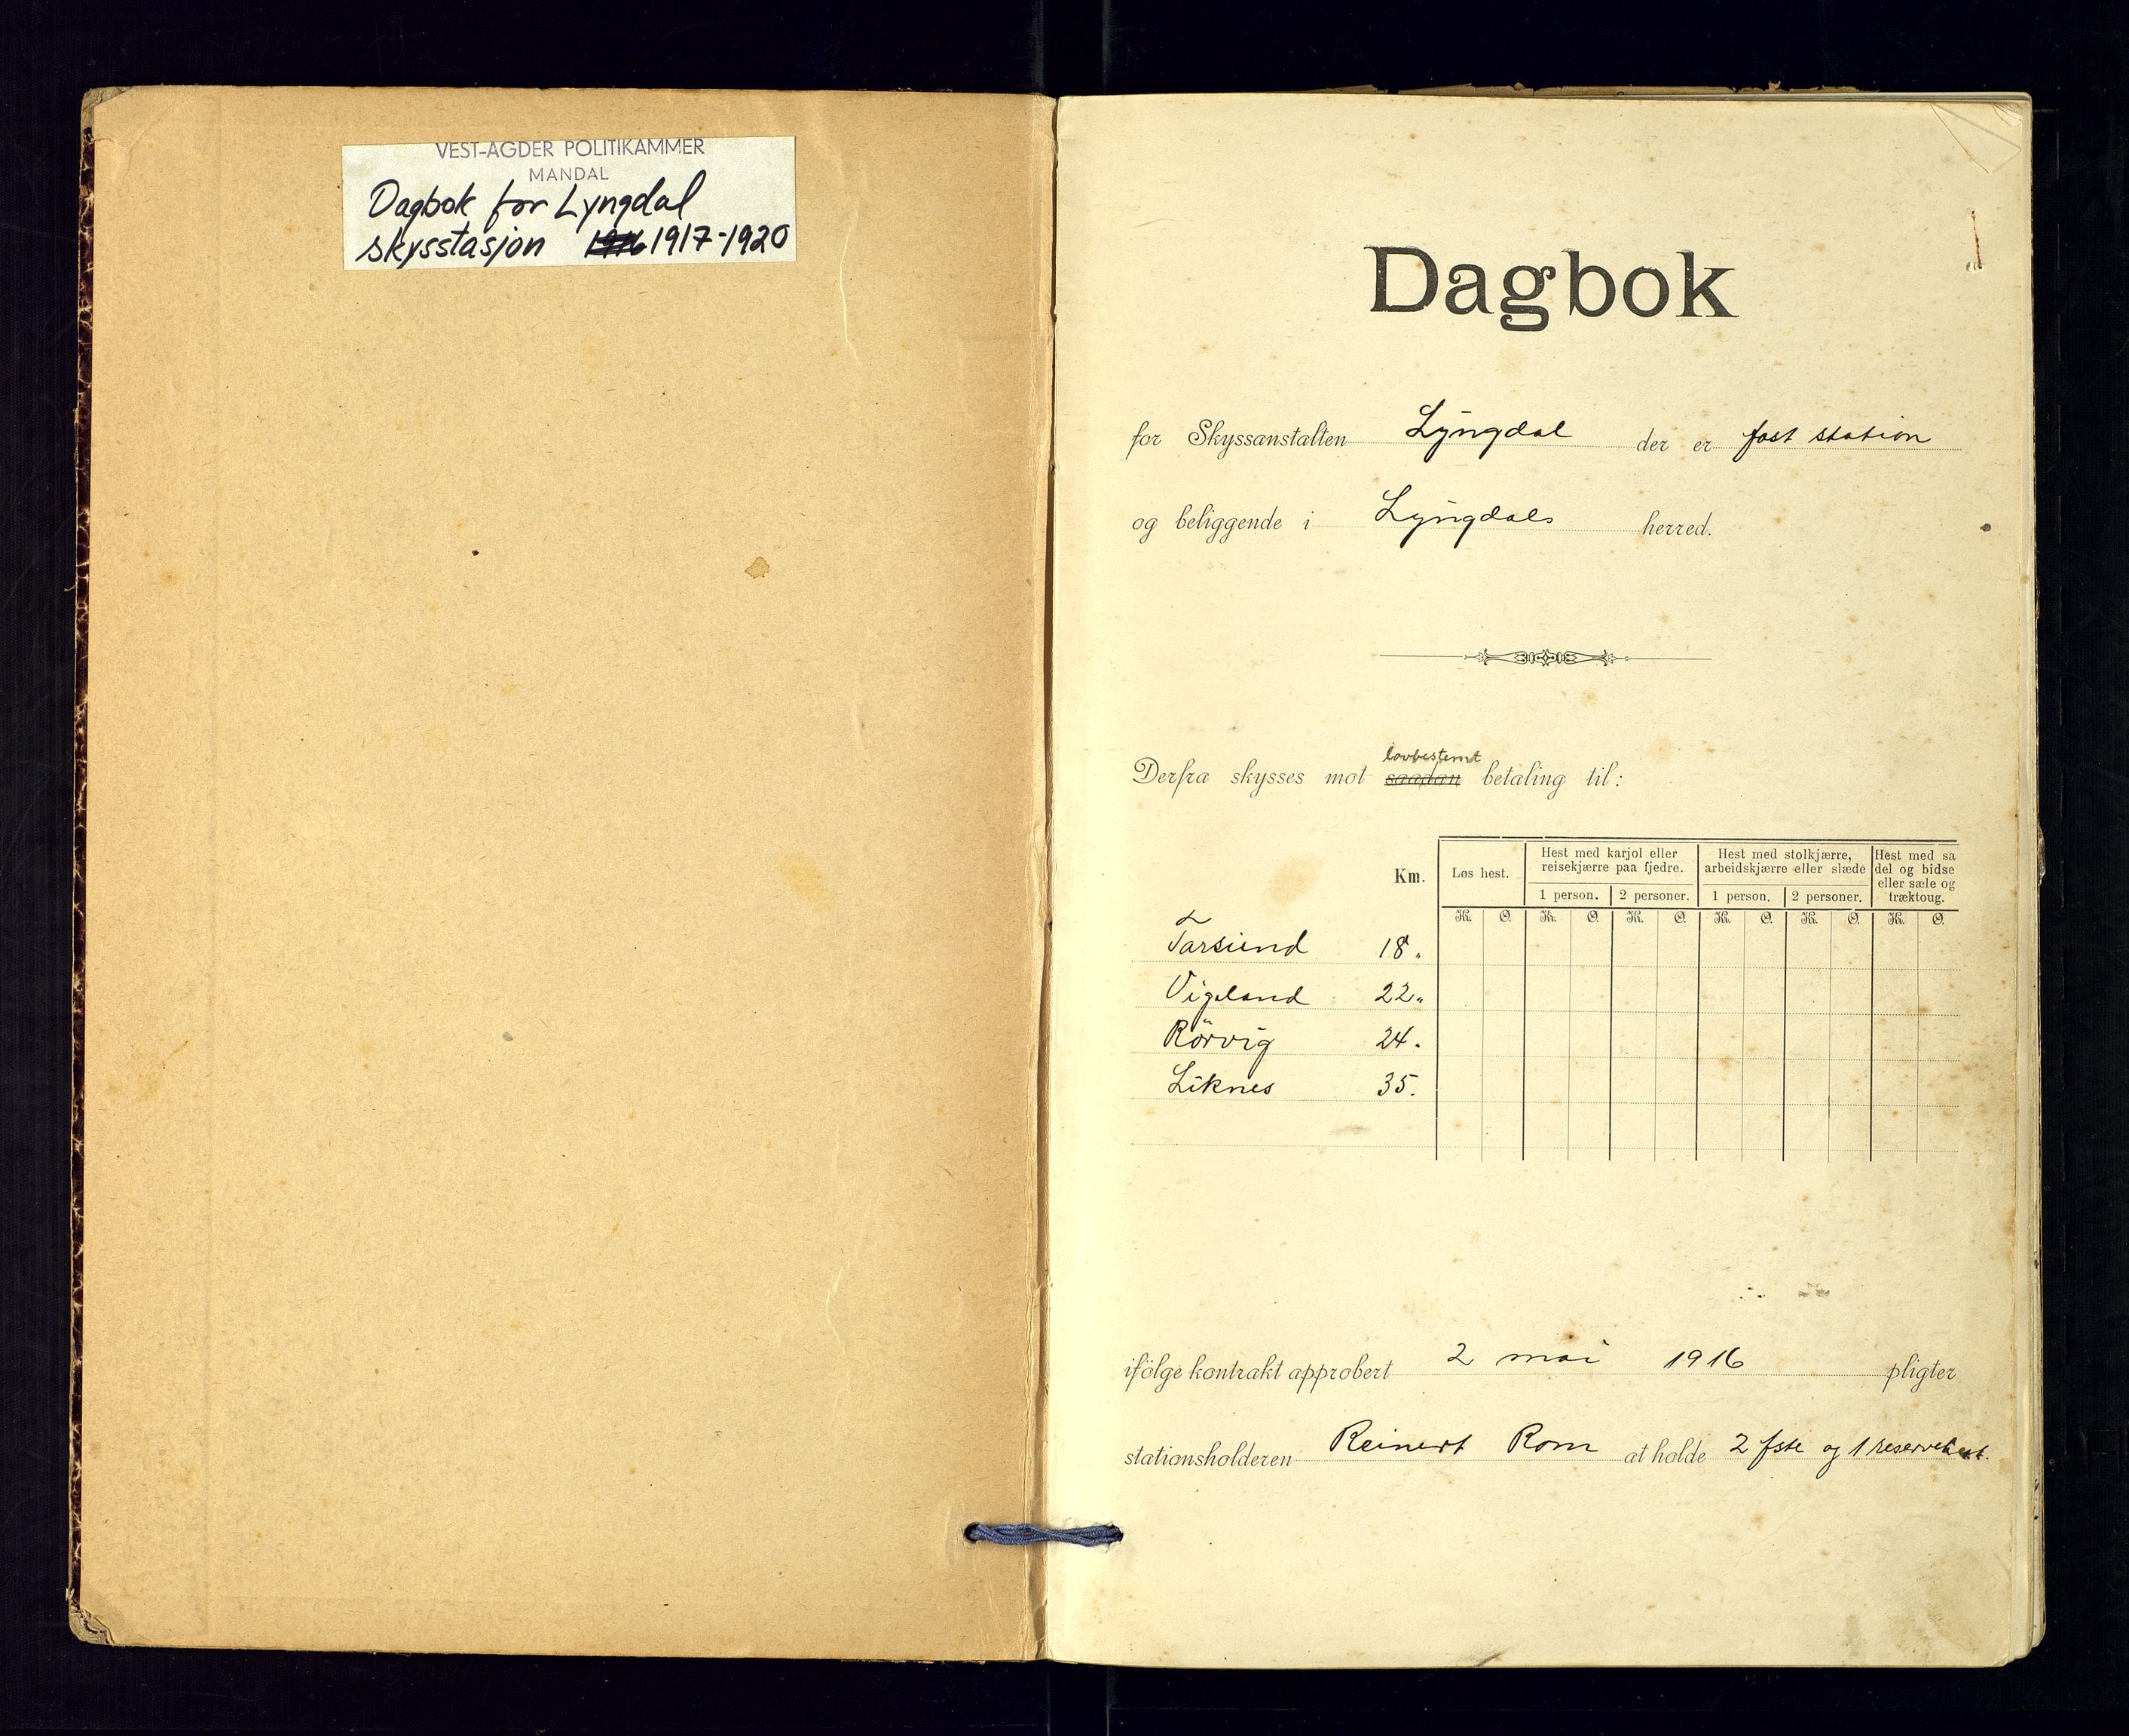 VEST-AGDER POLITIKAMMER
MANDAL
Dagbok for Lyngdal
skysstasjon 1916 1917-1920
Dagbok
for Skyssanstalten Lyngdal der er fast station
og beliggende i Lyngdals herred.
lovbestemt
Derfra skysses mot saadan betaling til:
Km.
Løs hest.
Hest med karjol eller
reisekjærre paa fjedre.
Hest med stolkjærre,
arbeidskjærre eller slæde
Hest med sa
del og bidse
eller sæle og
træktoug.
1 person. 2 personer. 1 person. 2 personer.
Kr. Ø. Kr. Ø. Kr. Ø. Kr. Ø. Kr. Ø. Kr. Ø.
Farsund 18 "
Vigeland 22 "
Rörvig 24 "
Liknes 35 "
ifölge kontrakt approbert 2 mai 1916 pligter
stationsholderen Reinert Rom at holde 2 fste og 1 reservehest.